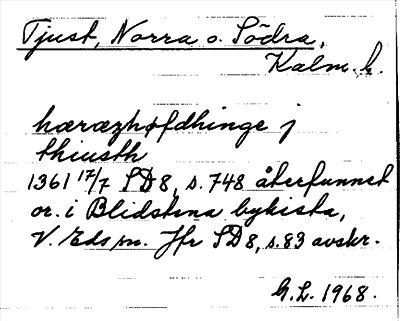 Tjust, Norra o. Södra,
Kalm. l.
hæræzhøfdhinge j
thiusth
1361 17/7 SD 8, s. 748 återfunnet
or. i Blidstena bykista,
V. Eds sn. Jfr SD 8, s. 83 avskr.
G.L. 1968.